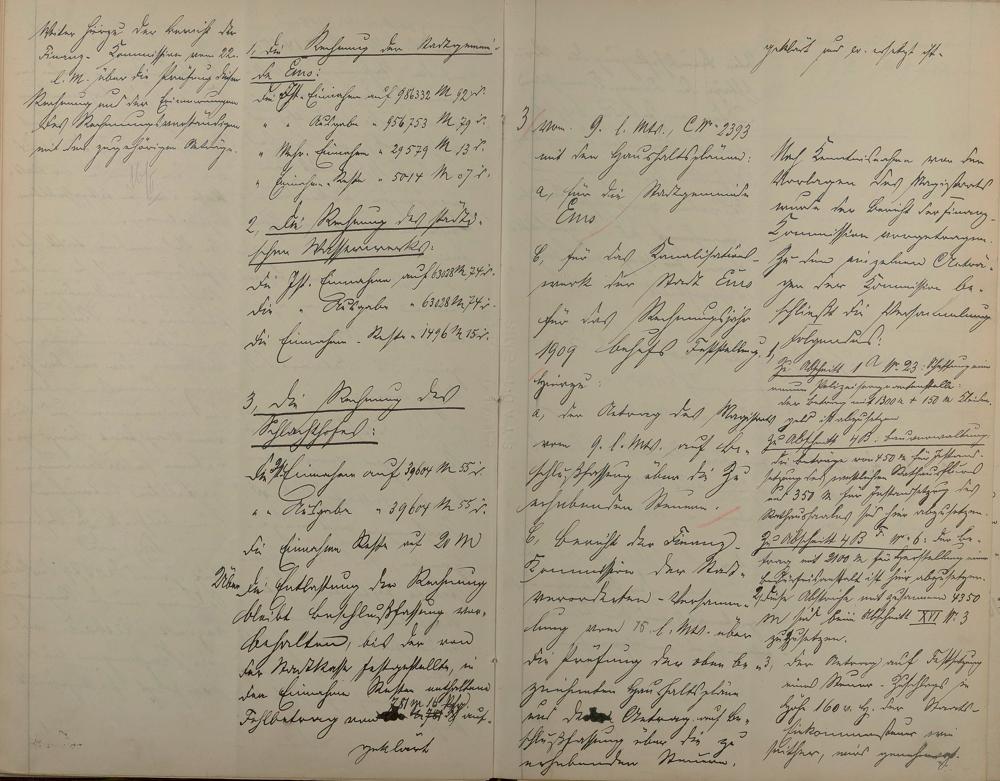 Weiter hierzu der Bericht der
Finanz-Kommission vom 22.
l. M. über die Prüfung dieser
Rechnung und der Erinnerungen
des Rechnungsverständigen
mit den zugehörigen Anträgen.
1, Die Rechnung der Stadtgemein-
de Ems:
Die Ist-Einnahme auf 986332 M 92 d.
" " Ausgabe " 956753 M 79 d.
" Mehr-Einnahme " 29579 M 13 d.
" Einnahme-Reste " 5014 M 07 d.
2, Die Rechnung des städti-
schen Wasserwerks:
Die Ist-Einnahme auf 63028 M 74 d.
die " Ausgabe " 63028 M 74 d.
die Einnahme-Reste " 1496 M 15 d.
3, Die Rechnung des
Schlachthofes:
Die Ist-Einnahme auf 39604 M 55 d.
" " Ausgabe " 39604 M 55 d.
die Einnahme Reste auf 20 M
Über die Entlastung der Rechnung
bleibt Beschlußfassung vor-
behalten, bis der von
der Stadtkasse festgestellte, in
den Einnahme Resten enthaltene
Fehlbetrag von 751 M 16 Pfg. auf-
geklärt
geklärt und ersetzt ist.
3 vom 9. l. Mts., C Nr. 2393
mit den Haushaltsplänen:
a, für die Stadtgemeinde
Ems
b, für das Kanalisations-
werk der Stadt Ems
für das Rechnungsjahr
1909 behufs Feststellung,
hierzu:
a, der Antrag des Magistrats
vom 9. l. Mts. auf Be-
schlußfassung über die zu
erhebenden Steuern.
b, Bericht der Finanz-
Kommission der Stadt-
verordneten-Versamm-
lung vom 15. l. Mts. über
die Prüfung der oben be-
zeichneten Haushaltspläne
und Antrag auf Be-
schlußfassung über die zu
erhebenden Steuern.
Nach Kenntnisnahme von den
Vorlagen des Magistrats
wurde der Bericht der Finanz-
Kommission vorgetragen.
Zu den einzelnen Anträ-
gen der Kommission be-
schließt die Versammlung
folgendes:
1, Zu Abschnitt 1 A Nr. 23: Schaffung einer
neuen Polizeisergeantenstelle:
der Betrag mit 1300 M + 150 M Kleider-
geld ist abzusetzen
Zu Abschnitt 4 B. Bauverwaltung
die Beträge von 450 M für Instand-
setzung des westlichen Rathausflures
und 350 M für Instandsetzung des
Rathaussaales sind hier abzusetzen.
Zu Abschnitt 4 B Nr. 6: der Be-
trag mit 2100 M für Herstellung einer
Bedürfnisanstalt ist hier abzusetzen.
2, diese Abstriche mit zusammen 4350
M sind beim Abschnitt XVI Nr. 3
zuzusetzen.
3, der Antrag auf Festsetzung
eines Steuer-Zuschlags in
Höhe 160 v. H. der Staats-
einkommensteuer wie
seither, wird genehmigt.